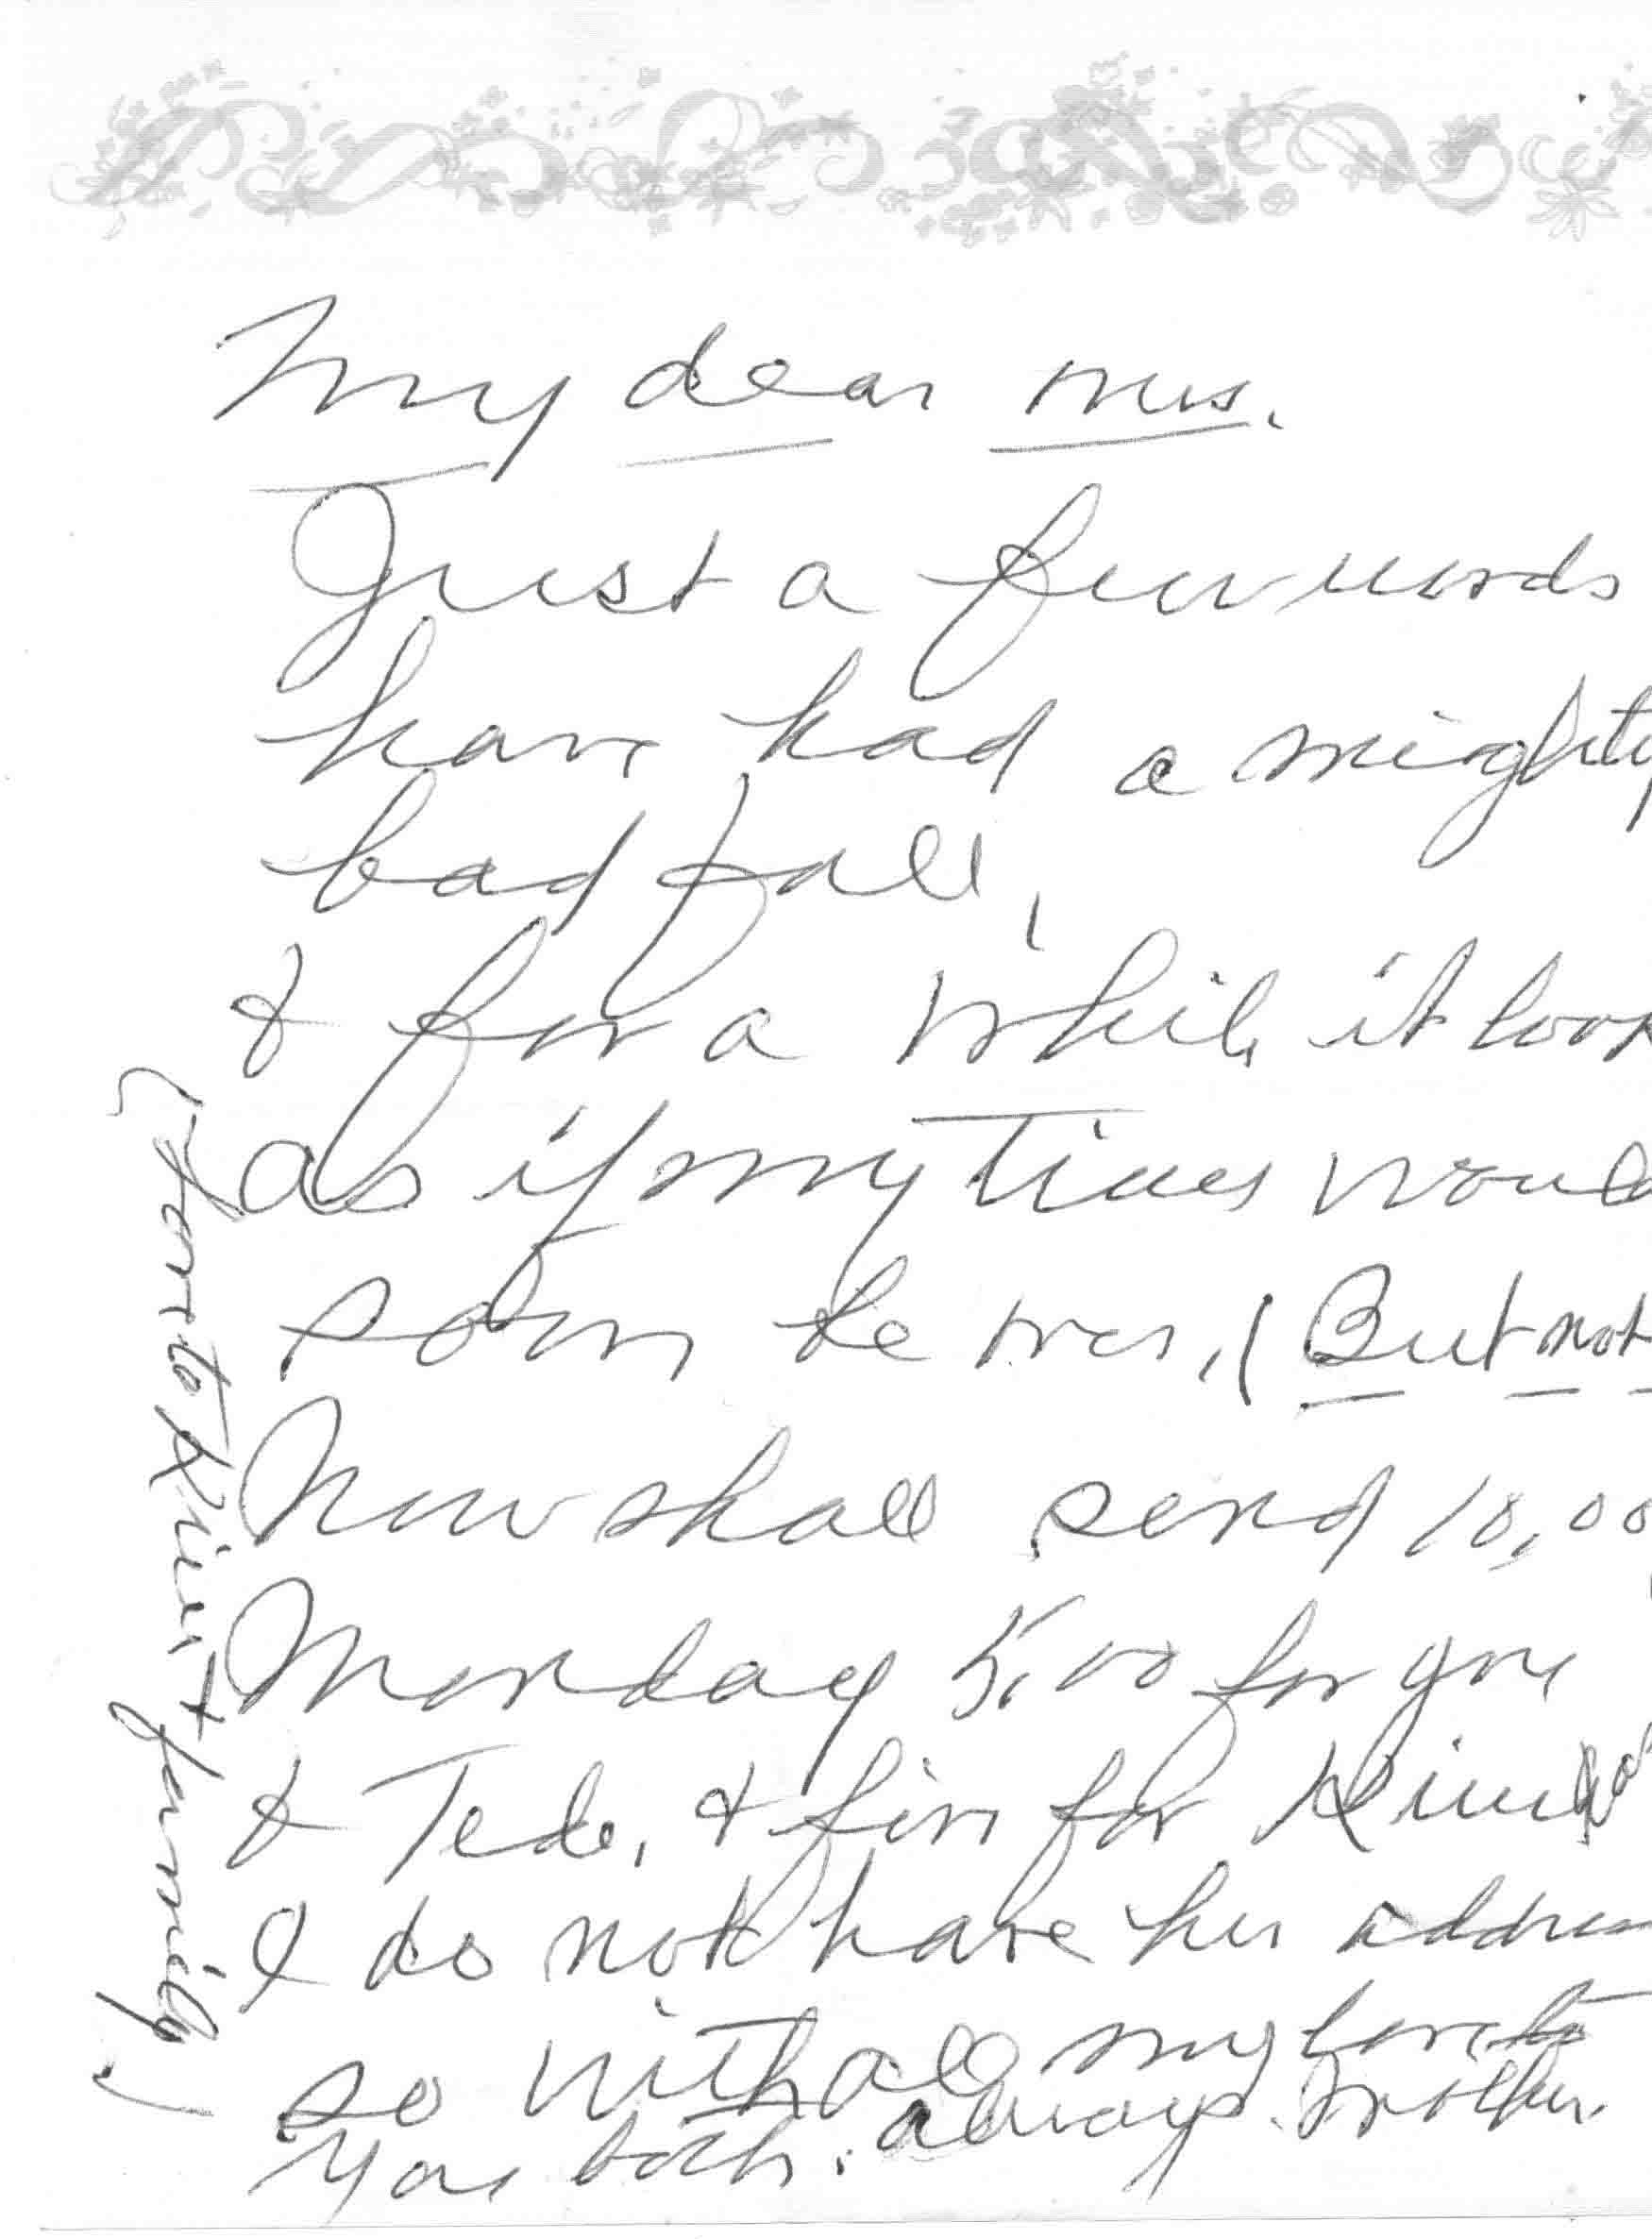 My dear mrs.
Just a few words
have had a mighty
bad fall,
& for a while it look
as if my Times would
soon be over, (But not
Now shall send 10,00
Monday 5,00 for you
& Teds, & five for
I do not have her address
so with all my love to
you both. always Mother.
(love to Kim + family)